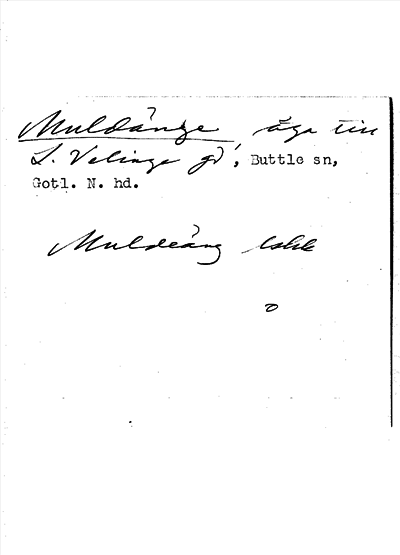 Muldänge äga till
L. Velinge gd, Buttle sn,
Gotl. N. hd.
Muldeäng